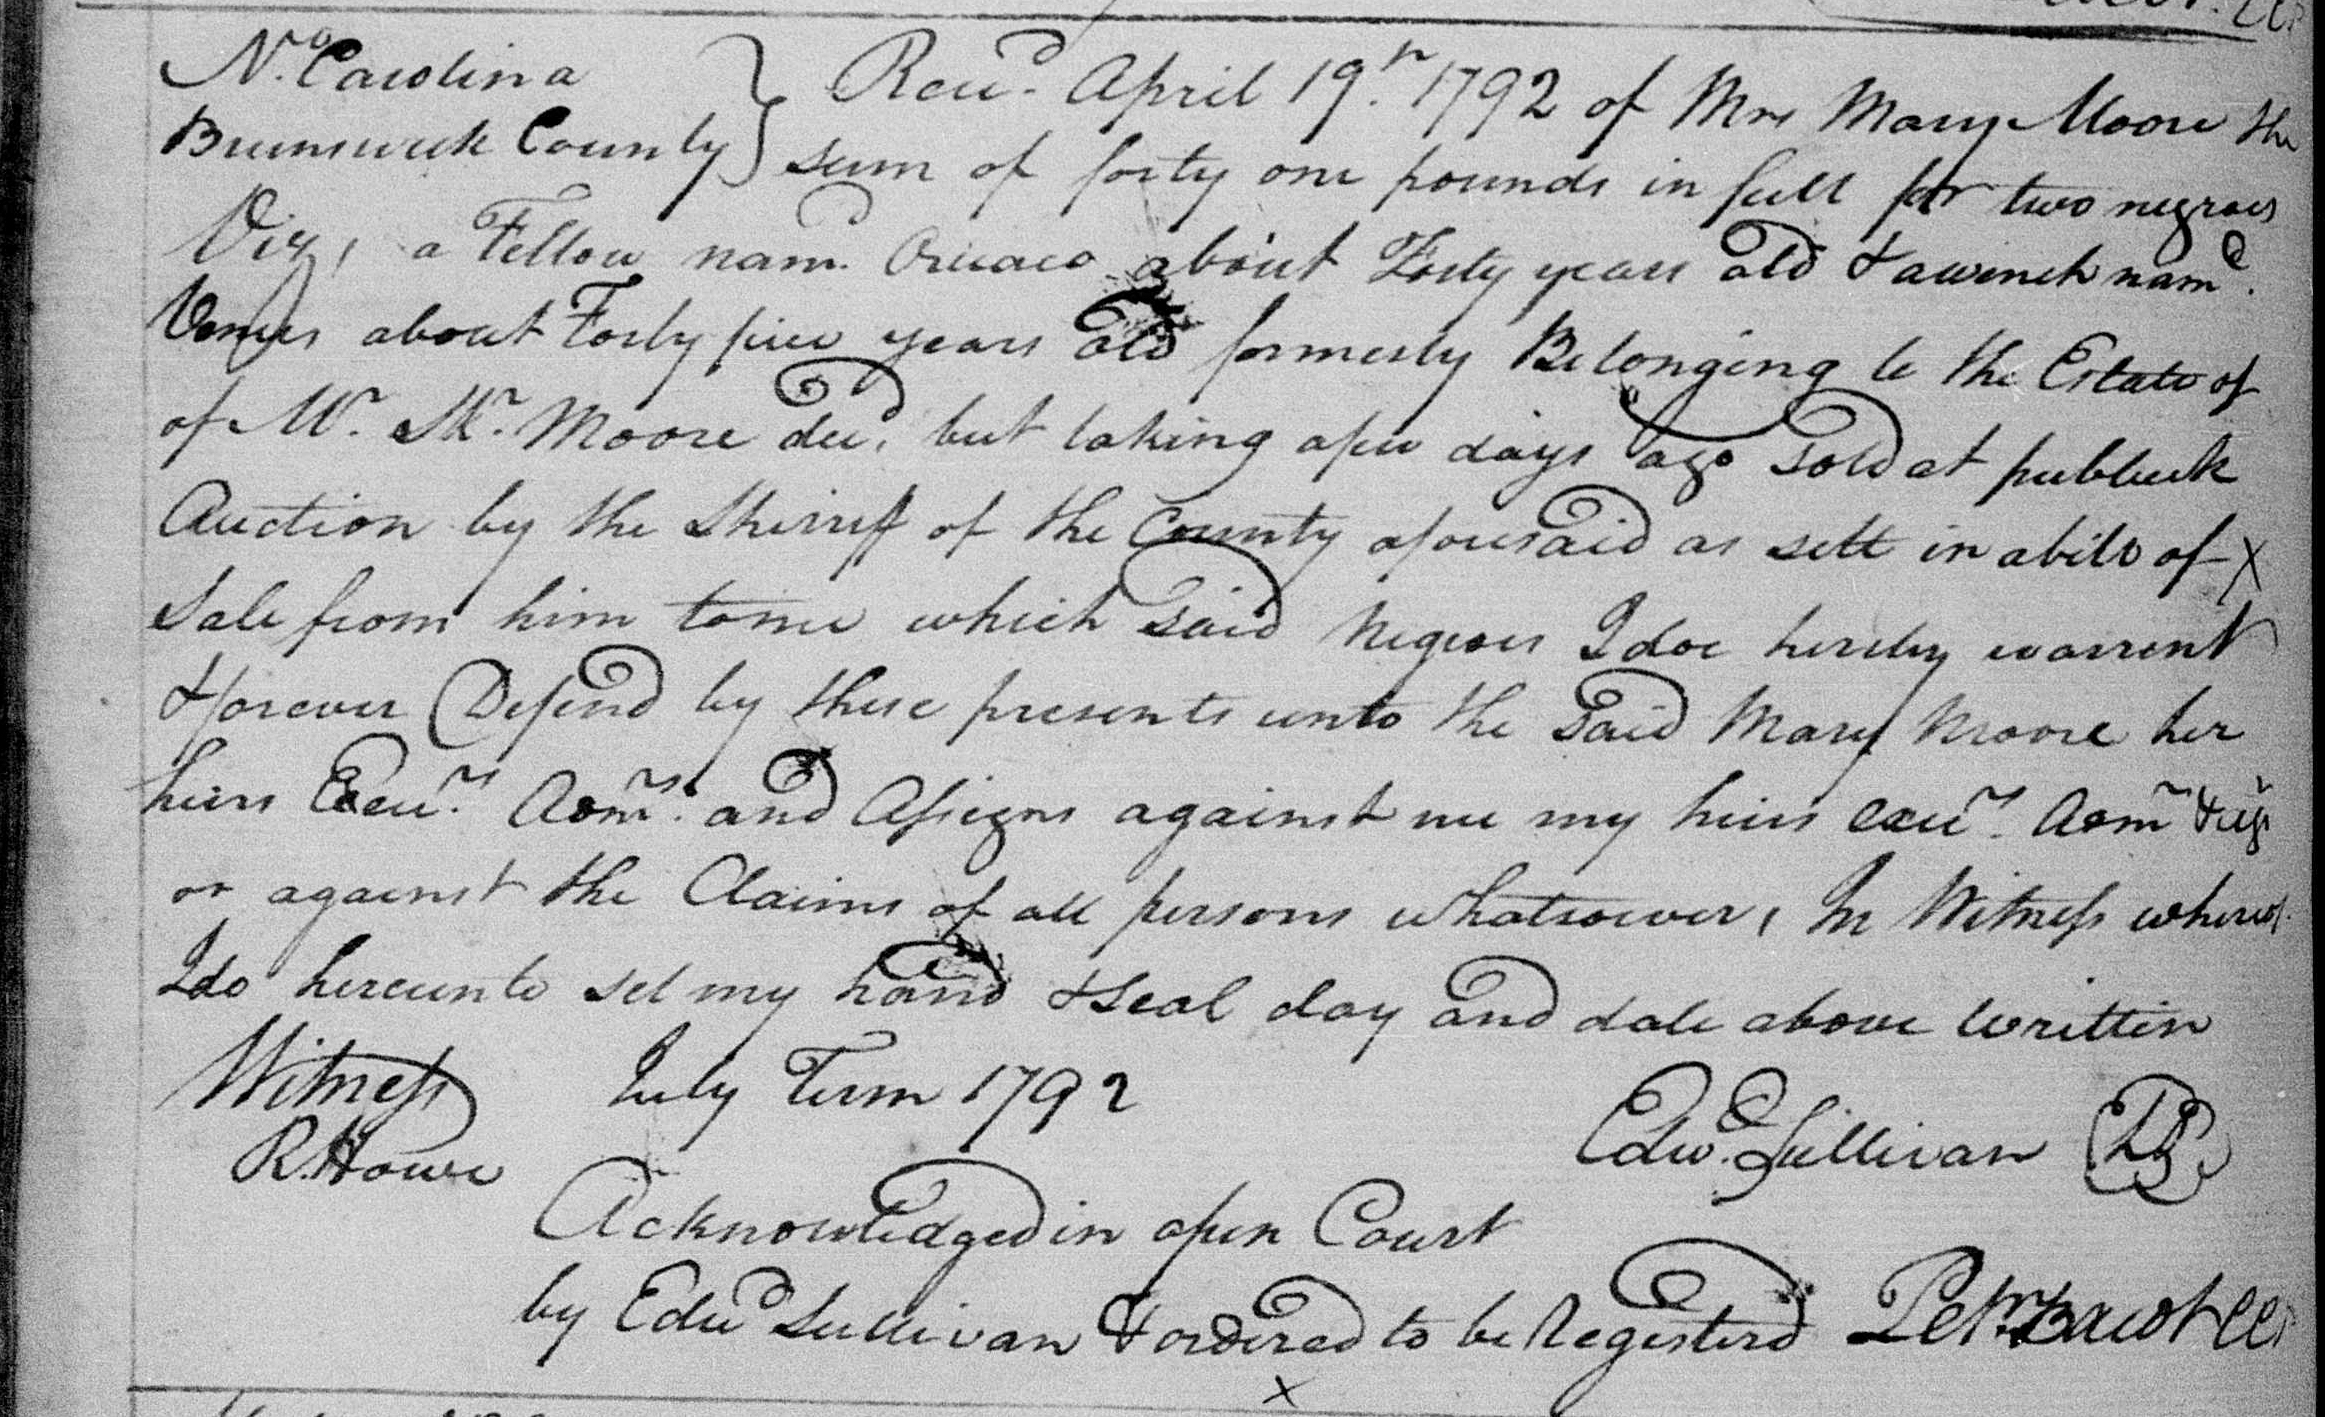 No. Carolina
Brunswick County } Recd. April 19th. 1792 of Mrs Mary Moore the
sum of forty one pounds in full for two negroes
Viz, a Fellow nam. about Forty years old & a wench namd.
Venus about Forty five years old formerly Belonging to the Estate of
of Wm. Moore decd. but taking a few days ago Sold at publick
Auction by the Sherriff of the County aforesaid as sett in a bill of X
Sale from him to me which said Negroes I doe hereby warrent
& forever Defend by these presents unto the said Mary Moore her
heirs Exeurs. Admrs. and Assigns against me my heirs exeurs. Admrs &
or against the Claims of all persons whatsoever, In Witness whereof
I do hereunto set my hand & Seal day and date above written
Witness July Term 1792
R. Howe Edwd. Sullivan LS
Acknowledged in open Court
by Edwd Sullivan & ordered to be Registerd
X